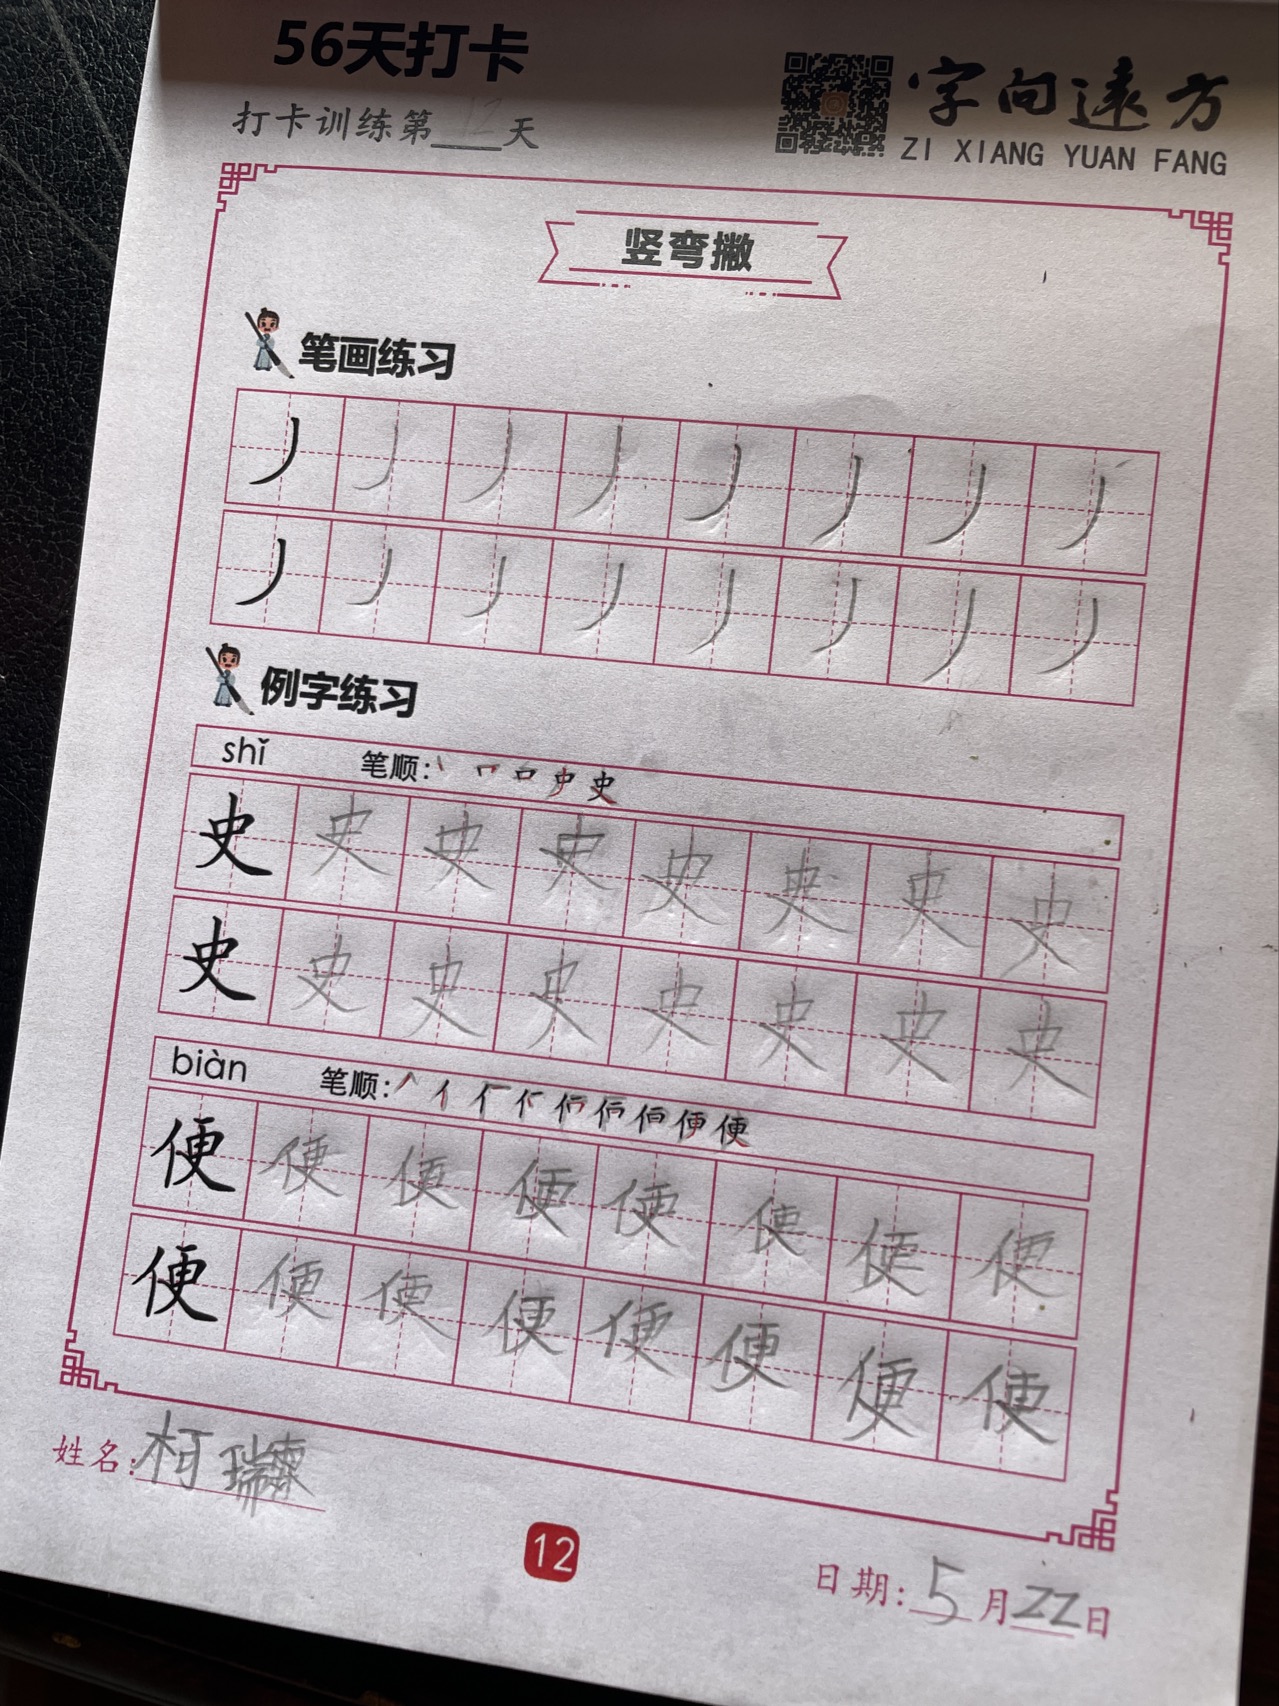 56天打卡
字向遠方
打卡训练第12天
ZI XIANG YUAN FANG
竖弯撇
笔画练习
丿丿丿丿丿丿丿丿
丿丿丿丿丿丿丿丿
例字练习
shǐ 笔顺:
史史史史史史史史
史史史史史史史史
biàn 笔顺:
便便便便便便便便
便便便便便便便便
姓名:柯瑞
12
日期:5月22日